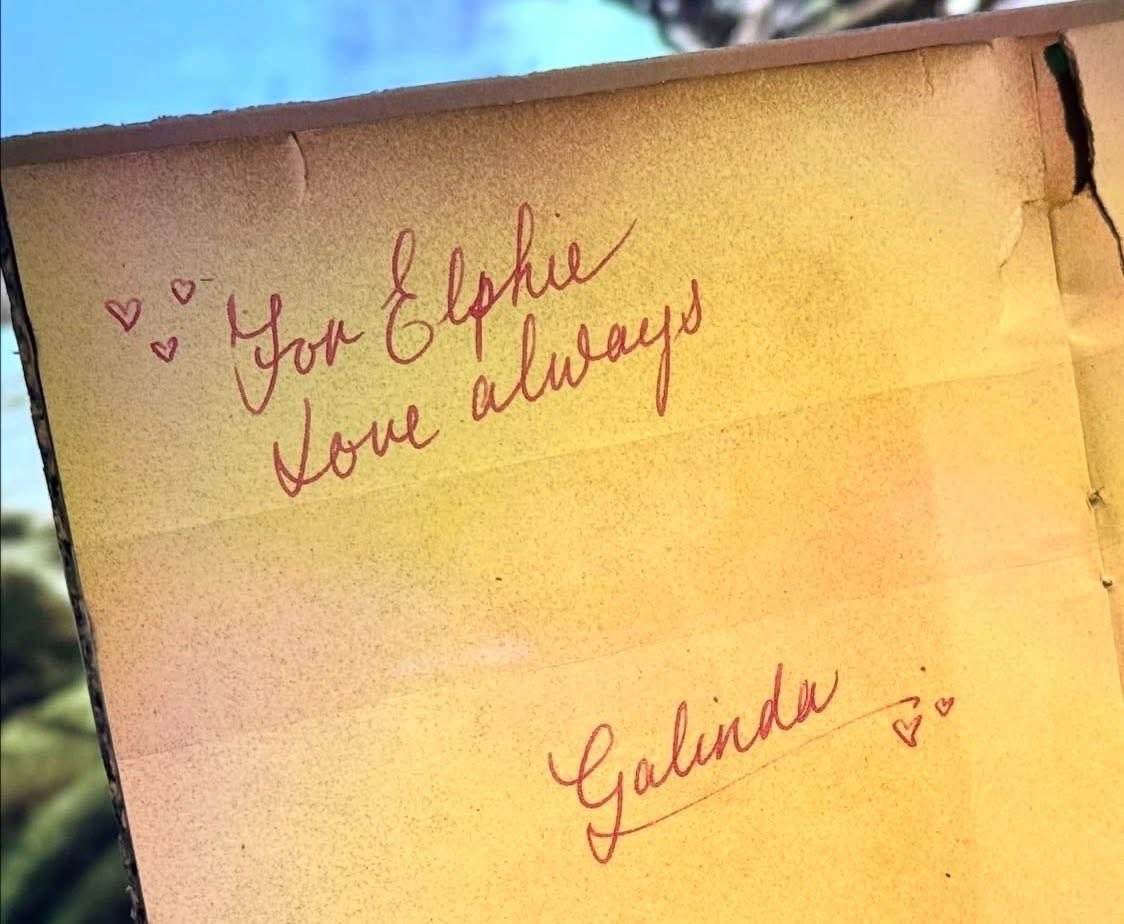 For Elphie
Love always
Galinda